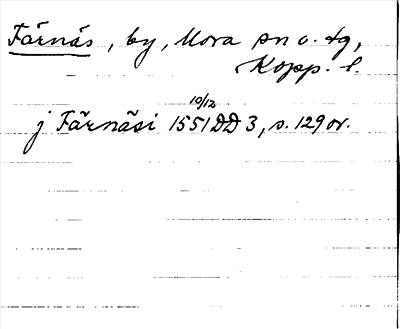 Färnäs, by, Mora sn o. tg,
Kopp. l.
10/12
j Färnäsi 1551 DD 3, s. 129 ov.